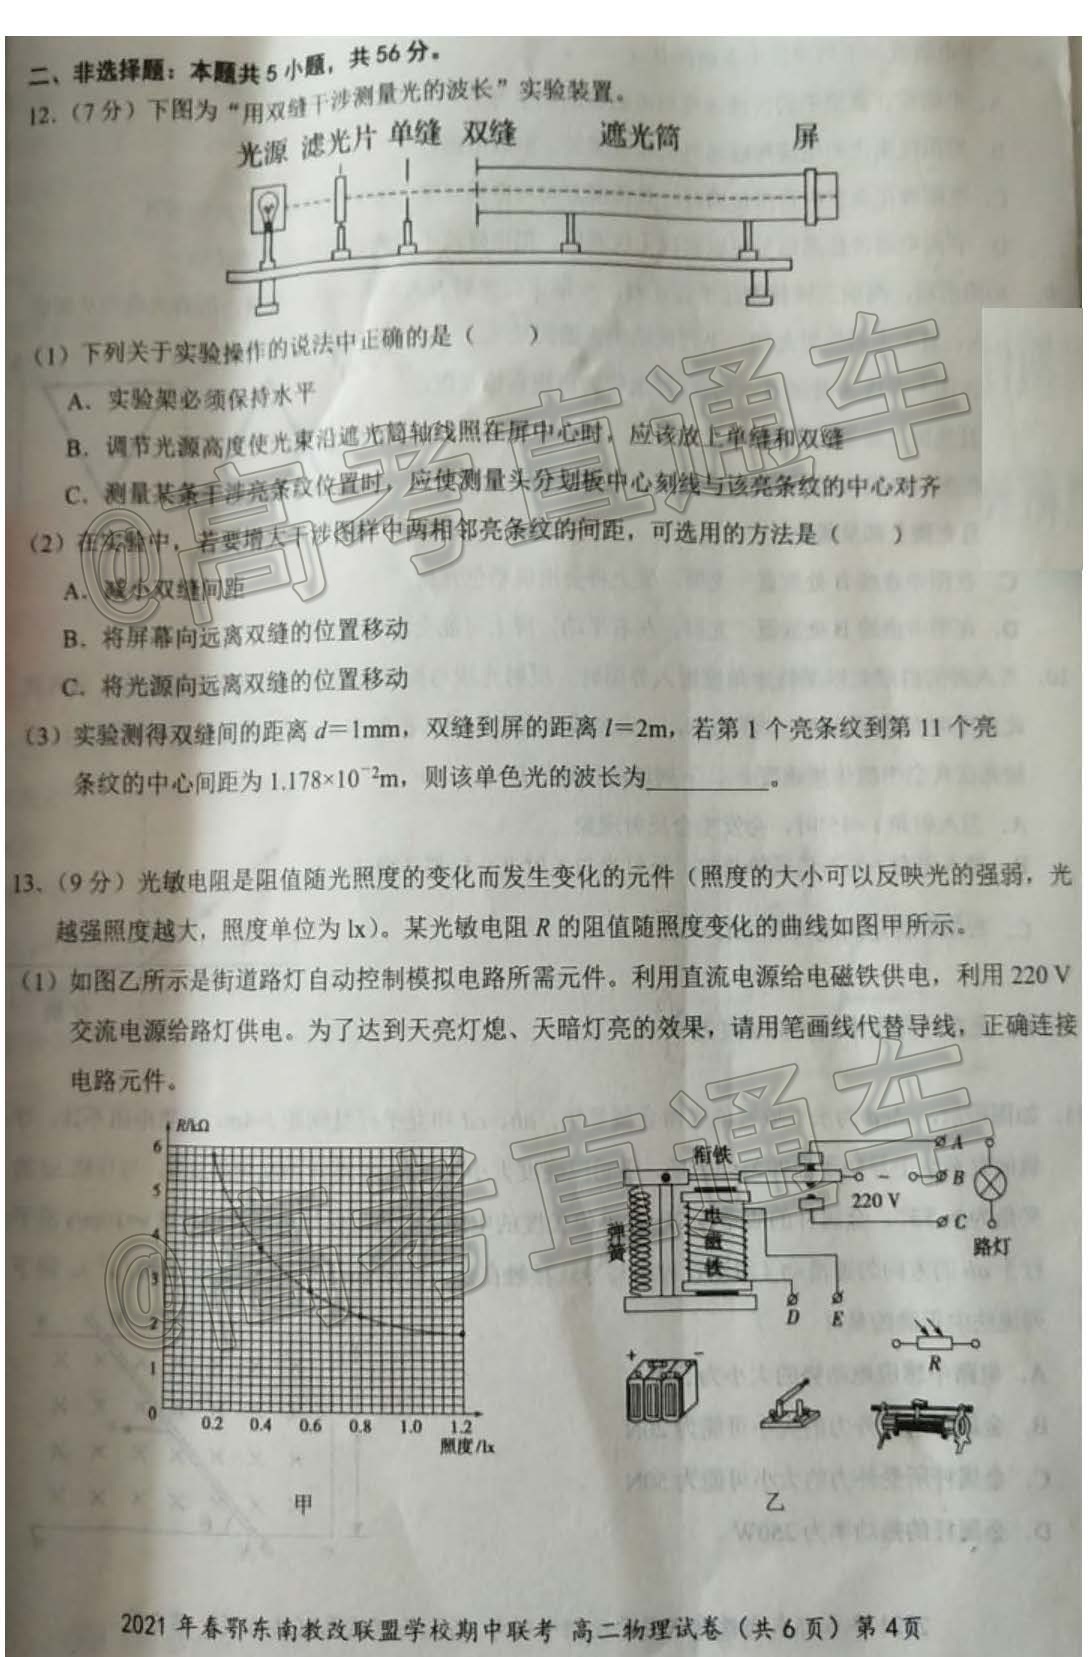 二、非选择题：本题共5小题，共56分。
12.（7分）下图为“用双缝干涉测量光的波长”实验装置。
光源 滤光片 单缝 双缝 遮光筒 屏
（1）下列关于实验操作的说法中正确的是（ ）
A．实验架必须保持水平
B．调节光源高度使光束沿遮光筒轴线照在屏中心时，应该放上单缝和双缝
C．测量某条干涉亮条纹位置时，应使测量头分划板中心刻线与该亮条纹的中心对齐
（2）在实验中，若要增大干涉图样中两相邻亮条纹的间距，可选用的方法是（ ）
A．减小双缝间距
B．将屏幕向远离双缝的位置移动
C．将光源向远离双缝的位置移动
（3）实验测得双缝间的距离 d＝1mm，双缝到屏的距离 l＝2m，若第 1 个亮条纹到第 11 个亮
条纹的中心间距为 1.178×10⁻²m，则该单色光的波长为________。
13、（9 分）光敏电阻是阻值随光照度的变化而发生变化的元件（照度的大小可以反映光的强弱，光
越强照度越大，照度单位为 lx）。某光敏电阻 R 的阻值随照度变化的曲线如图甲所示。
（1）如图乙所示是街道路灯自动控制模拟电路所需元件。利用直流电源给电磁铁供电，利用 220 V
交流电源给路灯供电。为了达到天亮灯熄、天暗灯亮的效果，请用笔画线代替导线，正确连接
电路元件。
R/kΩ
6
5
4
3
2
1
0
0.2 0.4 0.6 0.8 1.0 1.2
照度/lx
甲
衔铁
弹簧
电磁铁
220 V
~
A
B
C
路灯
D E
+ −
R
乙
2021 年春鄂东南教改联盟学校期中联考 高二物理试卷（共 6 页）第 4页
@高考直通车
@高考直通车